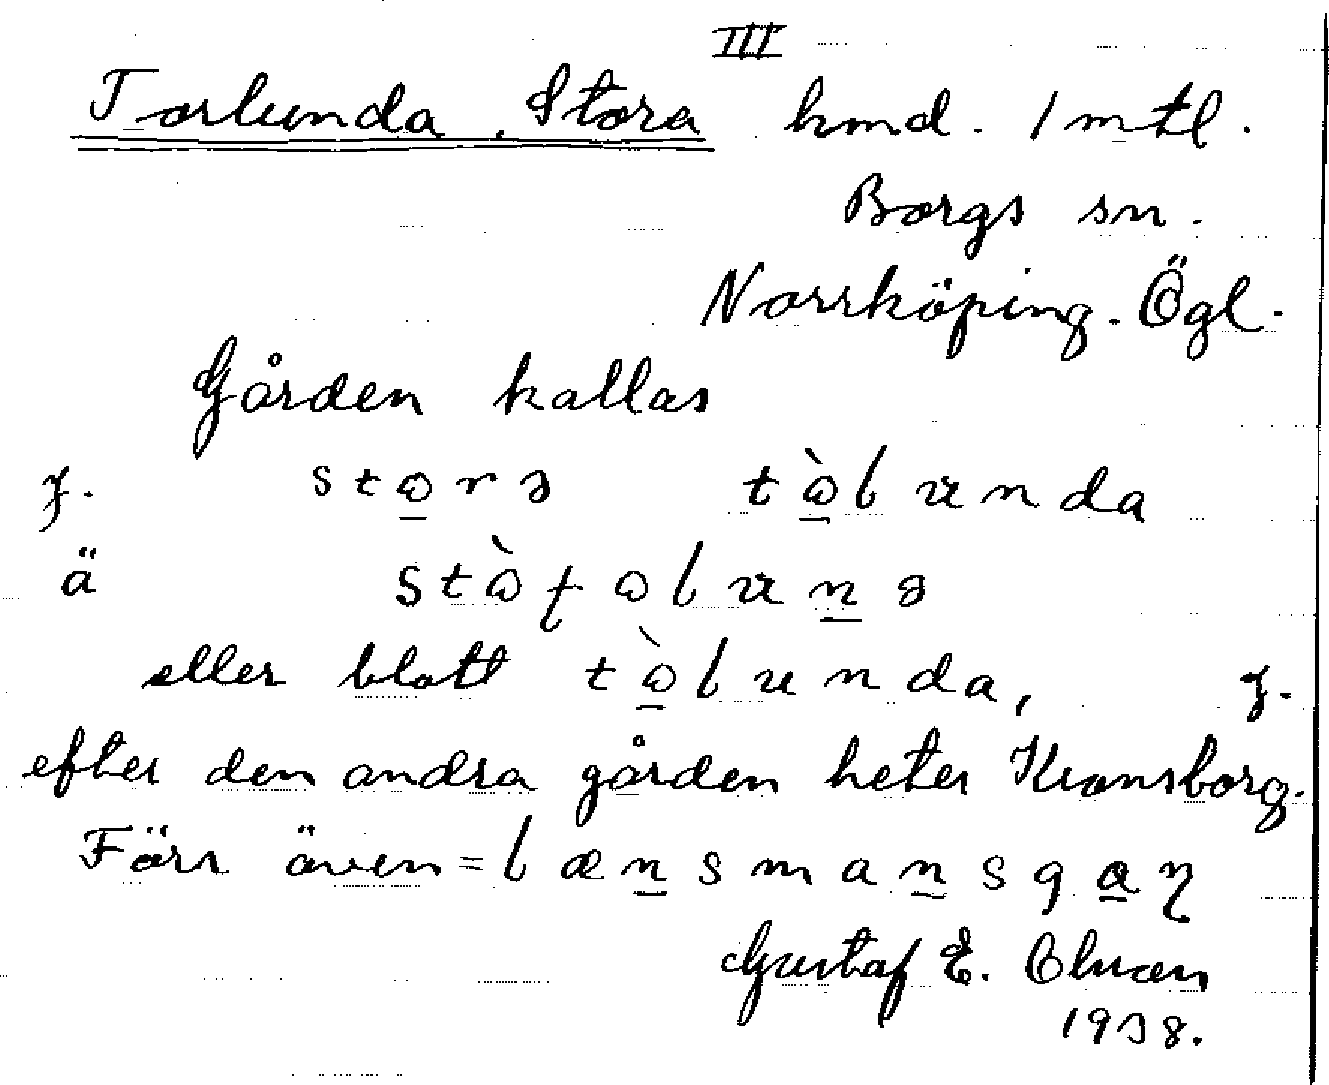 III
Torlunda, Stora hmd. 1 mtl.
Borgs sn.
Norrköping. Ögl.
Gården kallas
y. storə tòlunda
ä stòtolunə
eller blott tòlunda, y.
efter den andra gården heter Kronsborg.
Förr även = lænsmansgaɳ
Gustaf E.
1938.